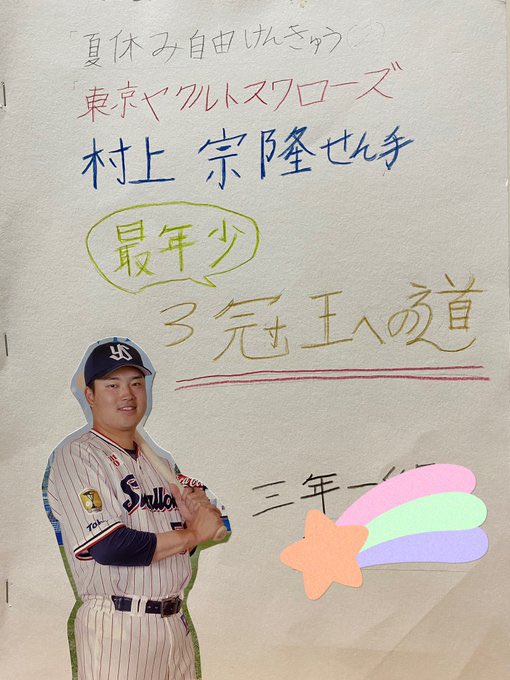 「夏休み自由けんきゅう」
東京ヤクルトスワローズ
村上 宗隆せん手
最年少
3冠王への道
三年一組
YS
Swallows